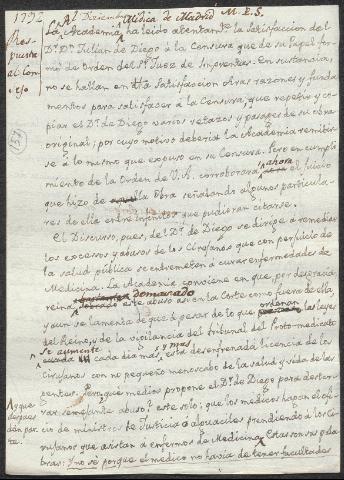 1792 Al Diciembre M.P.S.
Respuesta al Consejo
La Academia Médica de Madrid ha leído atentamte. la Satisfaccion del
Dr. Dn. Julian de Diego à la Censura que de su Papel for-
mó de Orden del Sr. Juez de Imprentas. En sustancia,
no se hallan en dha Satisfaccion otras razones y funda-
mentos para satisfacer à la Censura, que repetir y co-
piar el Dr. de Diego varios retazos y pasages de su obra
original; por cuyo motivo deberia la Academia remitir-
se à lo mismo que expuso en su Censura. Pero en cumpli-
miento de la Orden de V.A. corroborará ahora el juicio
que hizo de la Obra señalando algunos particula-
res de ella entre infinitos que pudieran citarse.
El Discurso, pues, del Dr. de Diego se dirige à remediar
los excesos y abusos de los Cirujanos que con perjuicio de
la salud pública se entremeten à curar enfermedades de
Medicina. La Academia conviene en que, por desgracia
reina demasiado este abuso asi en la Corte como fuera de ella,
y aun se lamenta de que à pesar de lo que ordenan las leyes
del Reino, y de la vigilancia del tribunal del Proto-medicato
se aumente cada dia mas y mas esta desenfrenada licencia de los
Cirujanos con no pequeño menoscabo de la salud y vida de las
gentes. Pero què medios propone el Dr. de Diego para dester-
rar semejante abuso? este solo; que los medicos hagan el ofi-
cio de ministros de Justicia ò alguaciles prendiendo à los Ci-
rujanos que asistan a enfermos de Medicina. Estas son sus pala-
bras: Y no sé porque el medico no havia de tener facultades